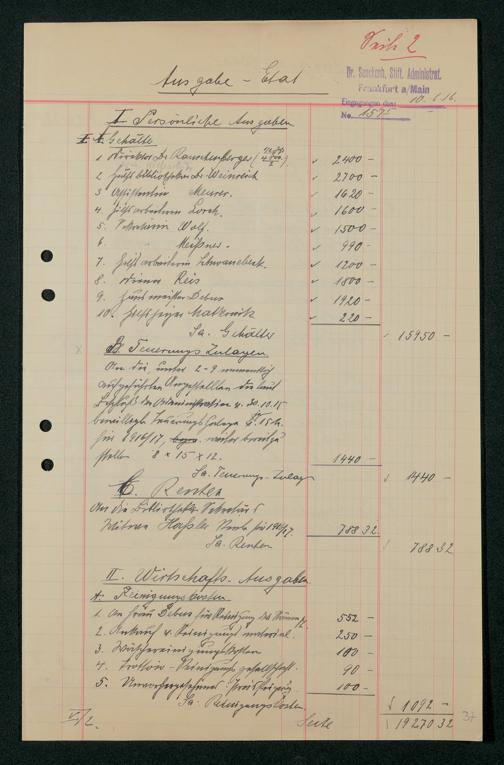 Seite 2
Dr. Senckenb. Stift. Administrat.
Frankfurt a/Main
Eingegangen den: 10.6.16.
No. 1575
Ausgabe - Etat
I Persönliche Ausgaben
A. Gehälter
1. Direktor Dr. Rauschenberger 2400 -
2. Hülfsbibliothekar Dr. Weinreich 2700 -
3. Assistentin Meurer. 1620 -
4. Hilfsarbeiterin Lorch. 1600 -
5. Sekretärin Wolf. 1500 -
6. Meißner. 990 -
7. Hilfsarbeiterin Schwanebeck. 1200 -
8. Diener Reis 1800 -
9. Hausmeister Debus 1920 -
10. Hilfsheizer 220 -
Sa. Gehälter 15950 -
B. Teuerungszulagen
An die unter 2-9 namentlich
aufgeführten Angestellten die laut
Beschluß der Administration v. 30.10.15
bewilligte Teuerungszulage v. 15 M.
für 1916/17, weiter bereit zu
stellen 8 x 15 x 12. 1440 -
Sa. Teuerungs-Zulagen 1440 -
C. Renten
An die Bibliothek Sekretärs
Witwe Rente für 1916/17. 788 32
Sa. Renten 788 32
II. Wirtschafts-Ausgaben
A. Reinigungskosten
1. An Frau Debus für Reinigung der Räume 552 -
2. Ankauf v. Reinigungsmaterial. 250 -
3. 100 -
4. Reinigungsgesellschaft. 90 -
5. Unvorhergesehenes 100 -
Sa. Reinigungskosten 1092 -
Seite 19270 32
37